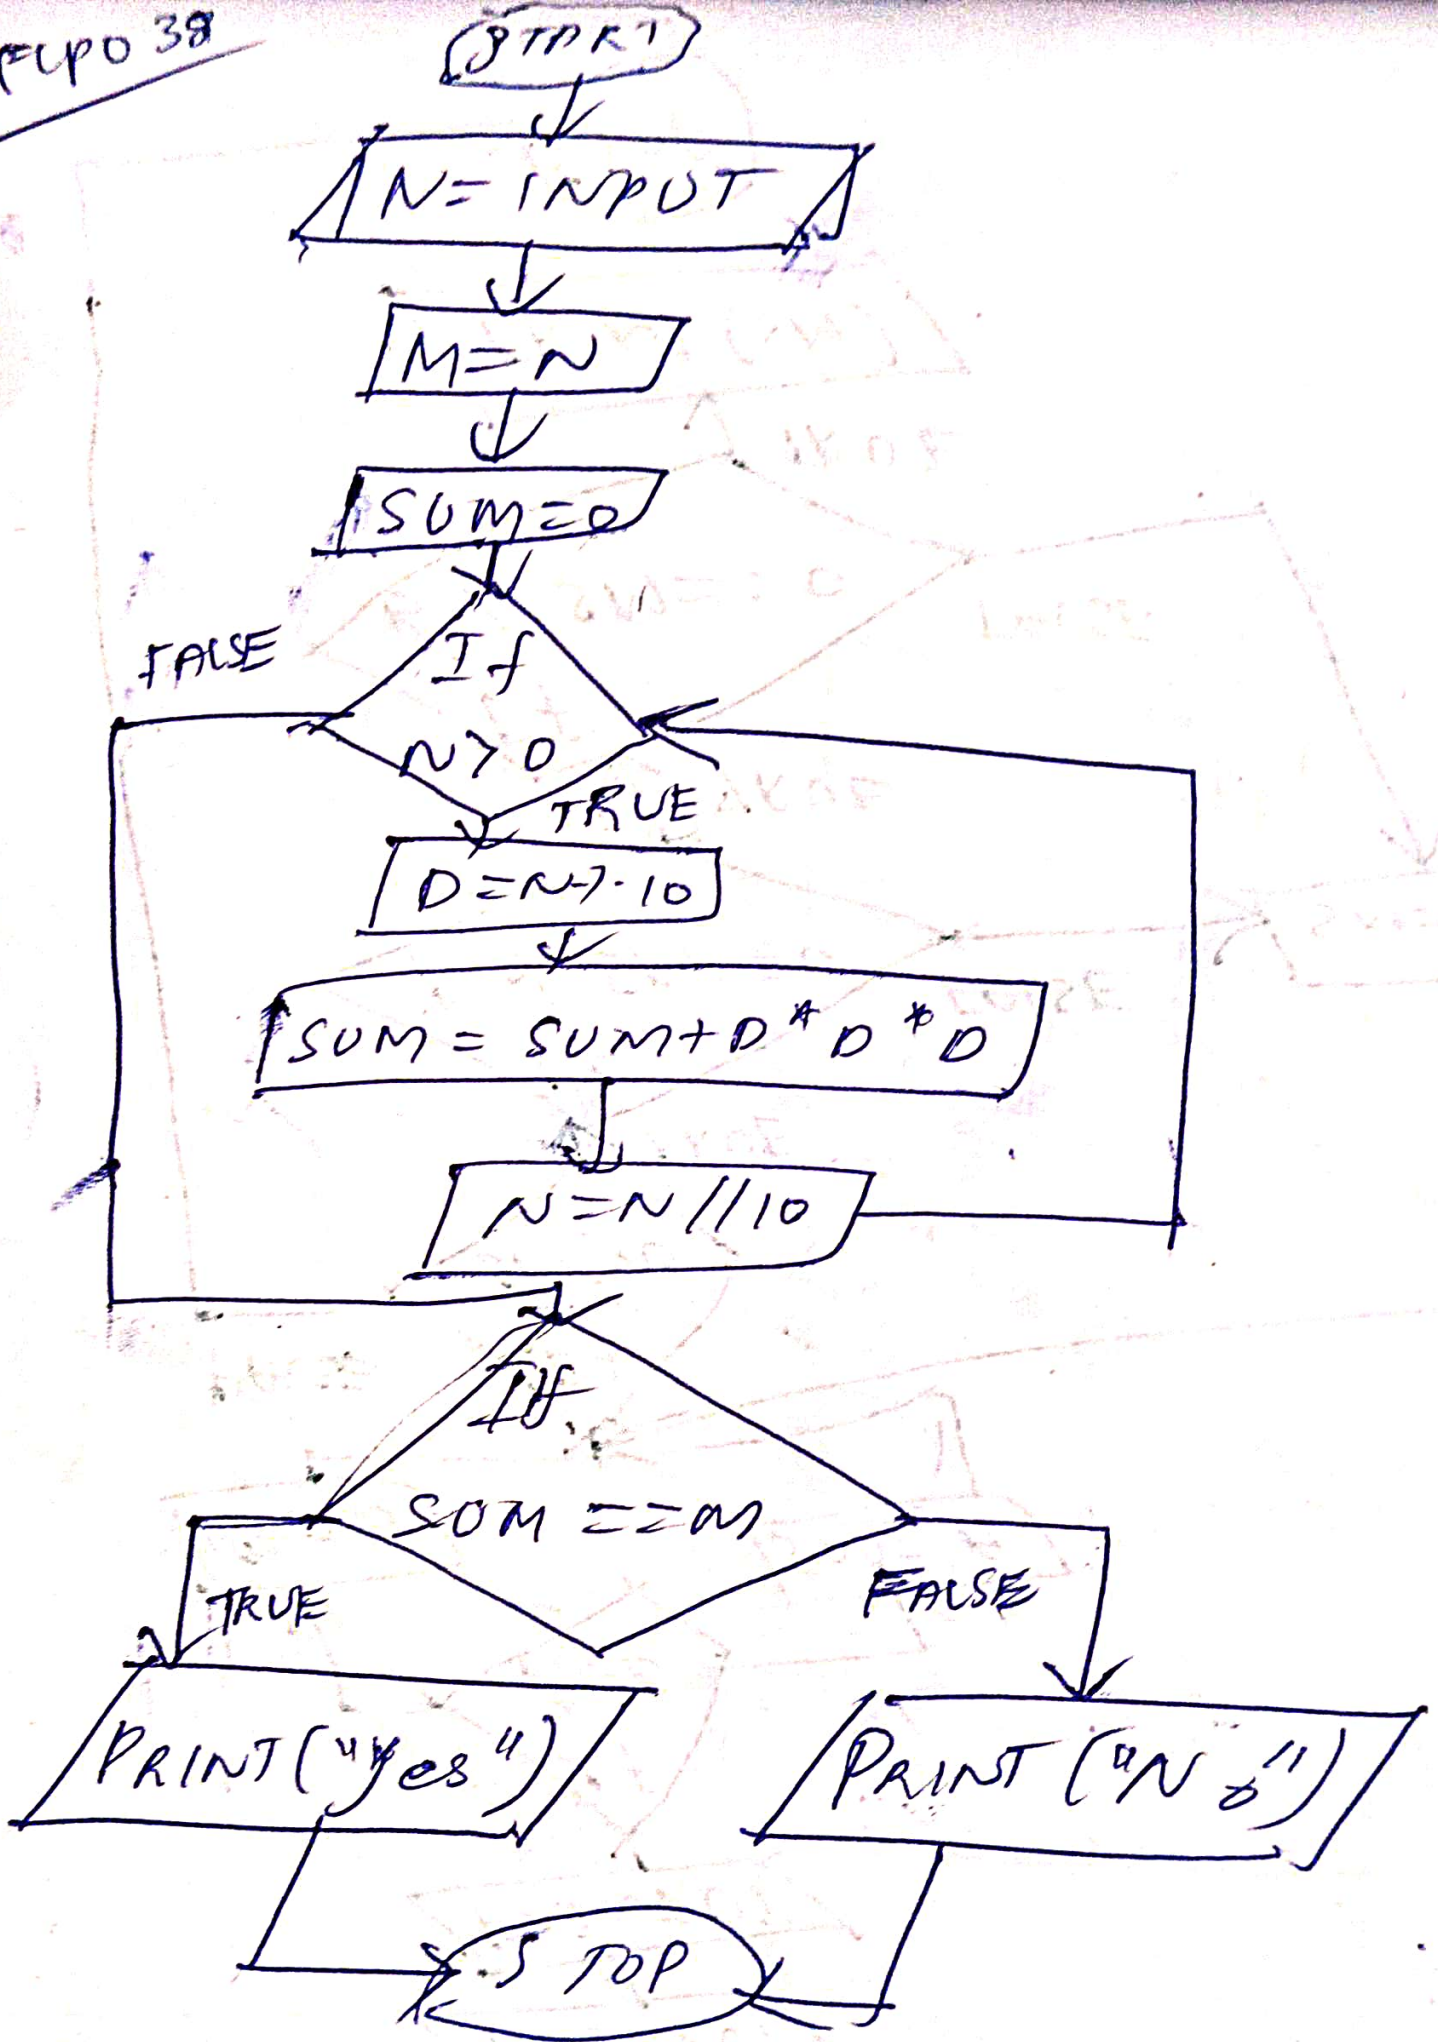 START
N=INPUT
M=N
SUM=0
FALSE
If
N>0
TRUE
D=N%10
SUM = SUM+D*D*D
N=N//10
If
SUM ==M
TRUE
FALSE
PRINT("Yes")
PRINT("No")
STOP